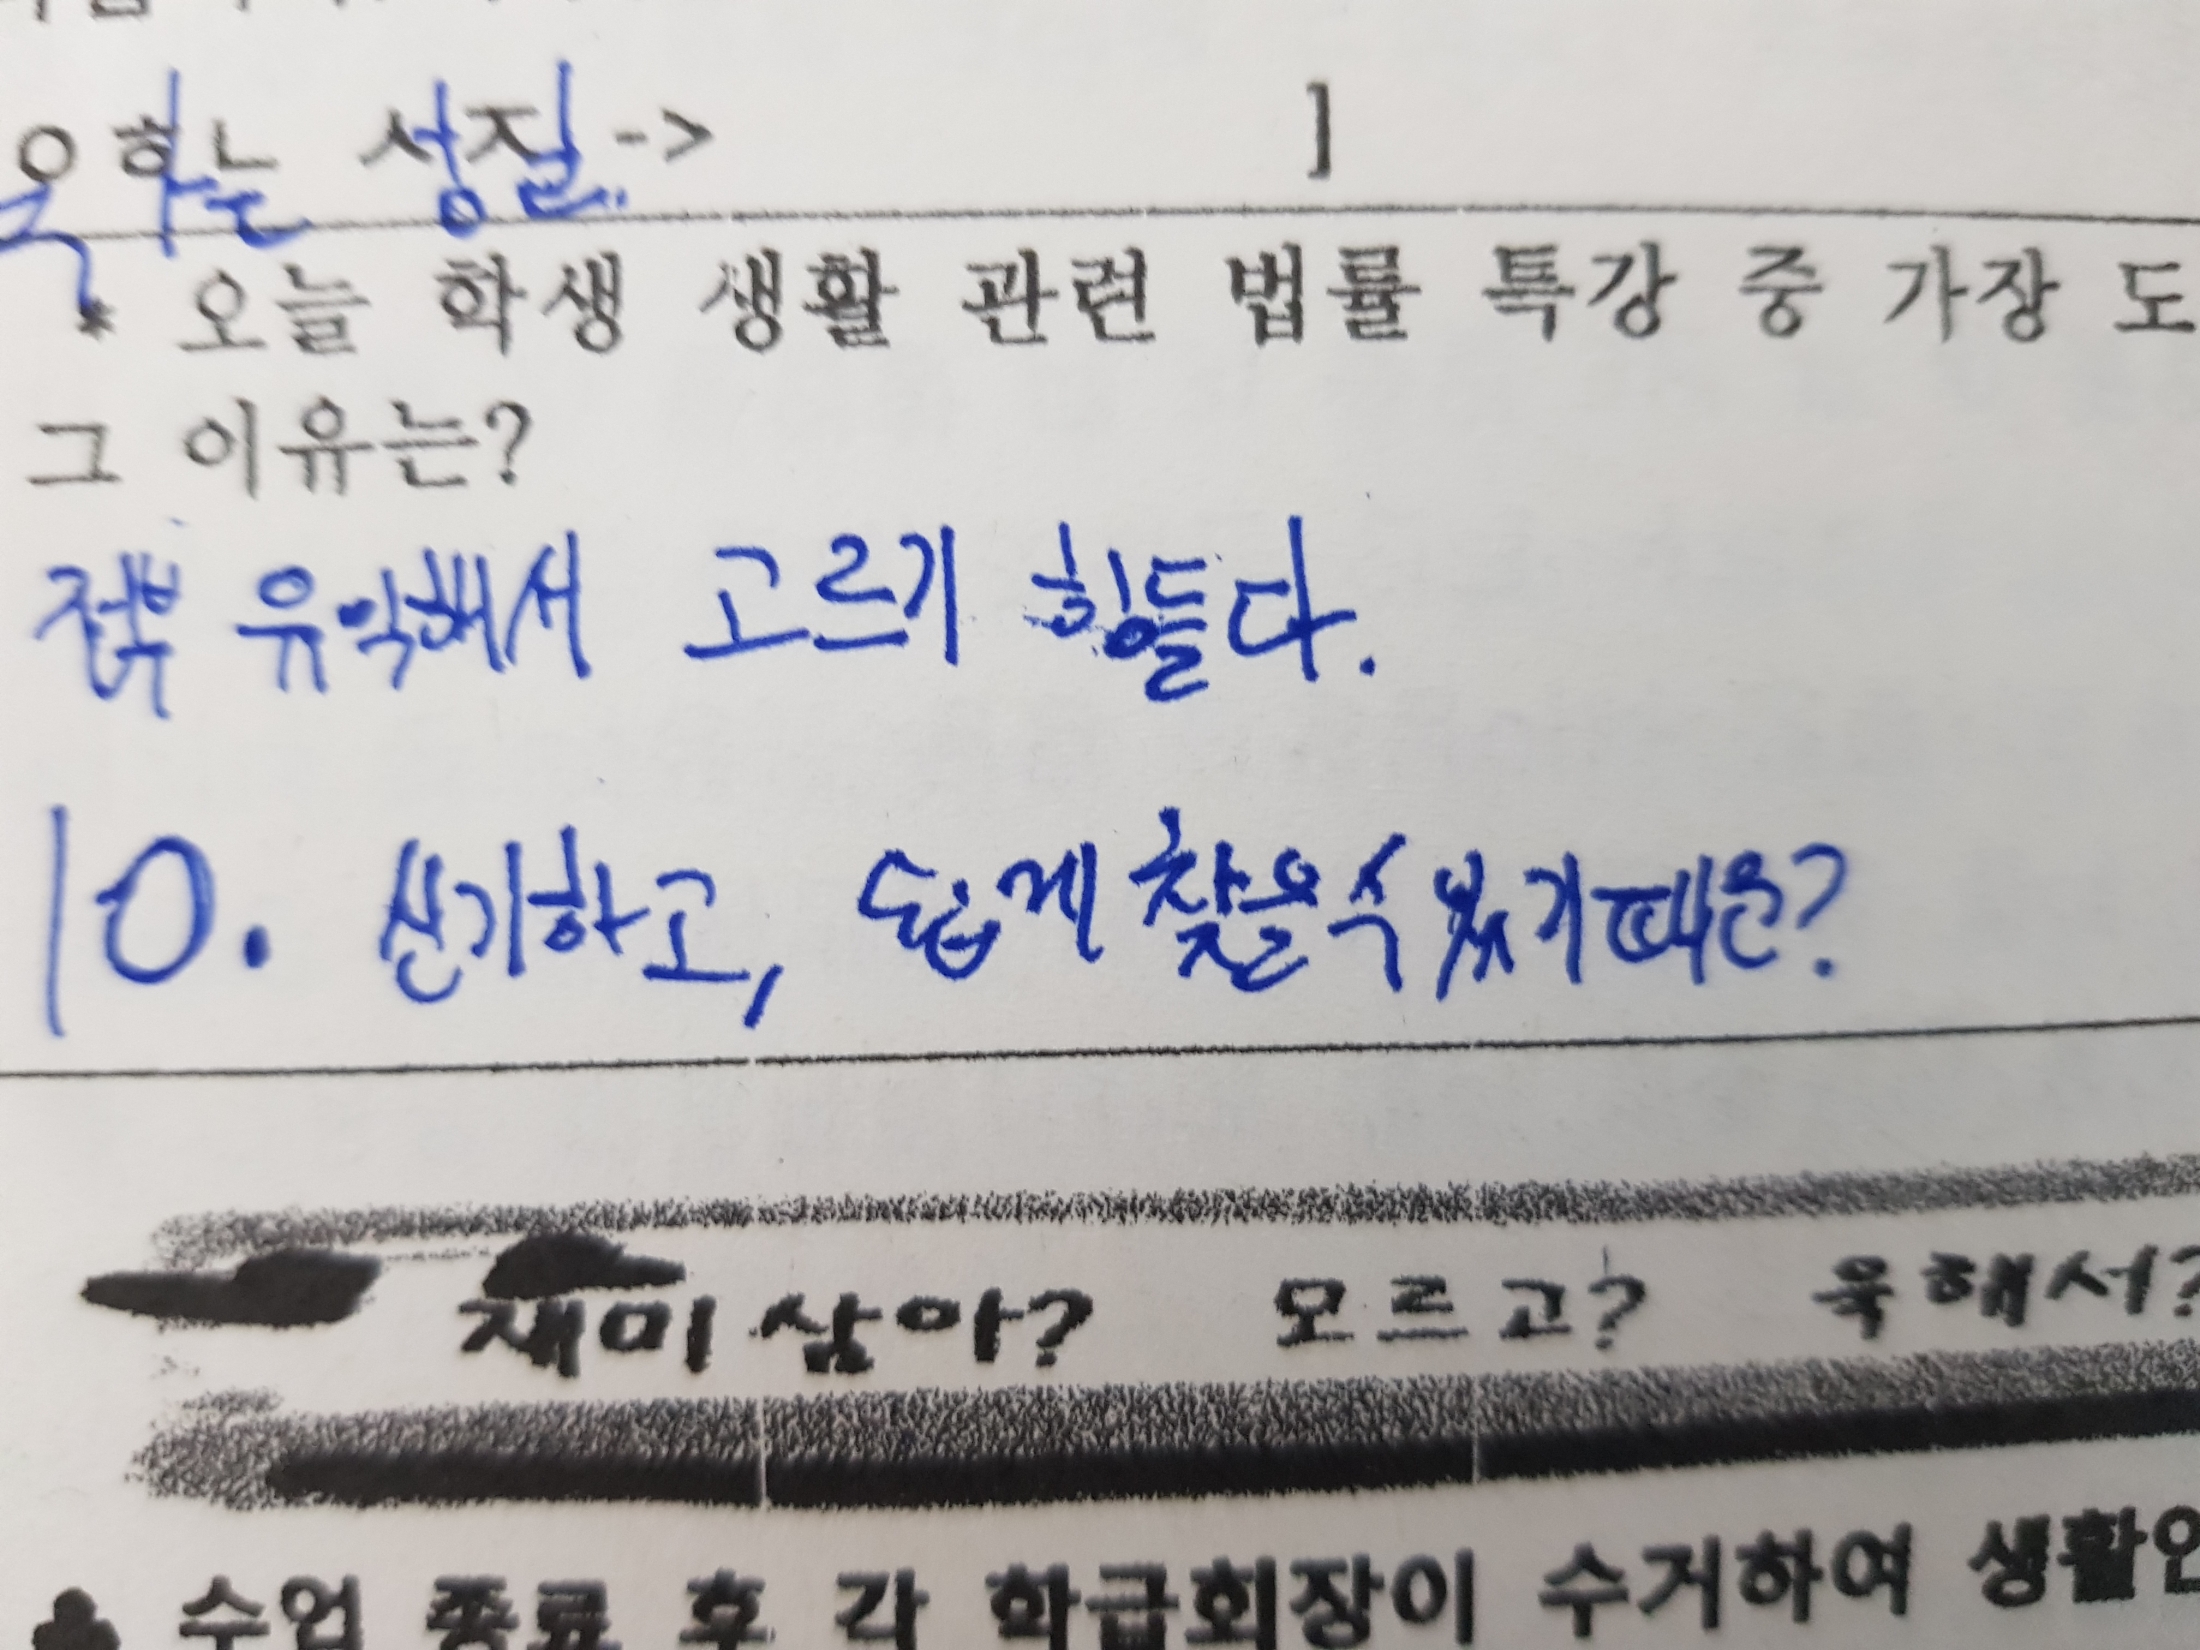 욱하는 성질->          ]
* 오늘 학생 생활 관련 법률 특강 중 가장 도
그 이유는?
전부 유익해서 고르기 힘들다.
10. 신기하고, 쉽게 찾을 수 있기 때문?
재미삼아? 모르고? 욱해서?
♣ 수업 종료 후 각 학급회장이 수거하여 생활안